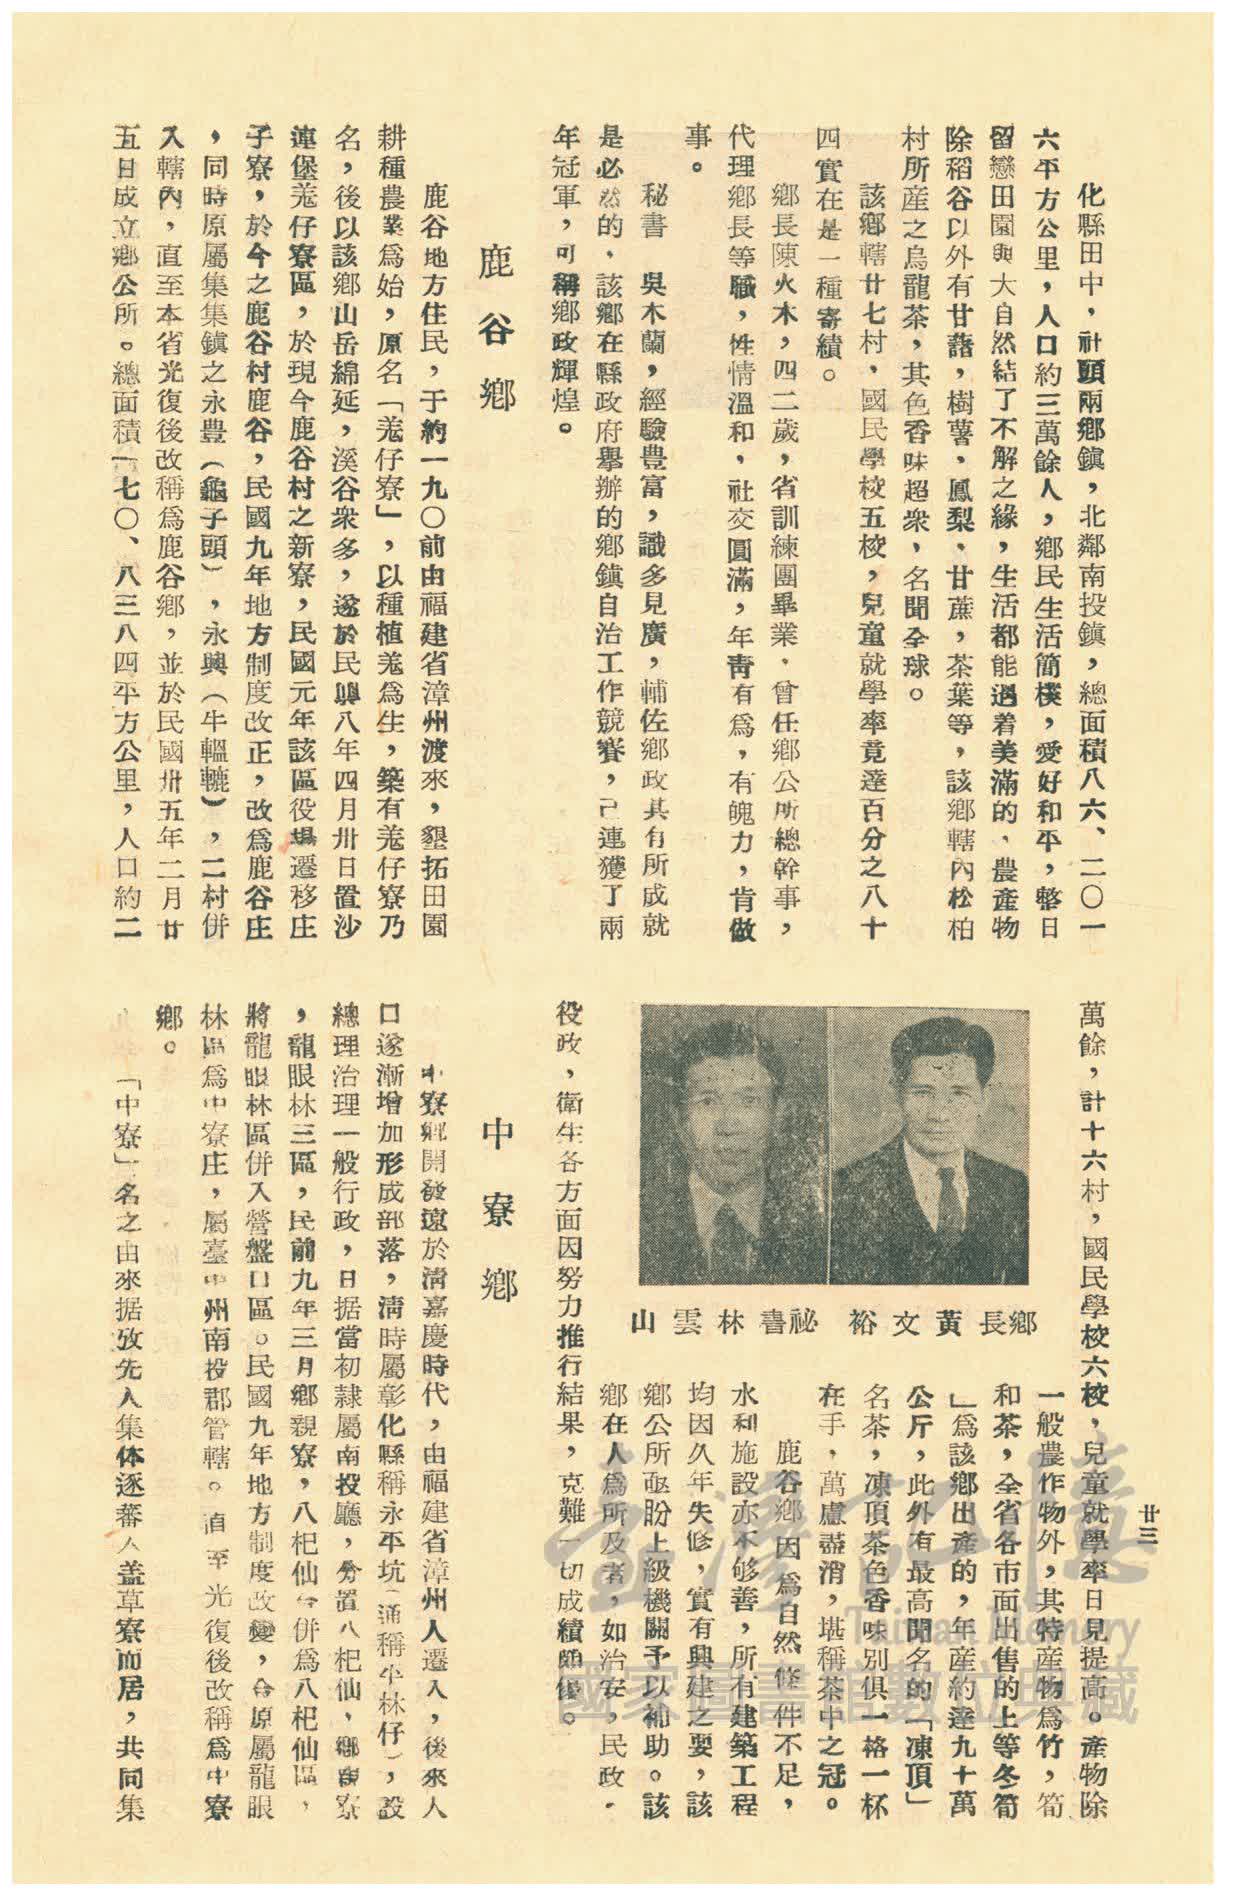 化縣田中，社頭兩鄉鎮，北鄰南投鎮，總面積八六、二〇一
六平方公里，人口約三萬餘人，鄉民生活簡樸，愛好和平，整日
留戀田園與大自然結了不解之緣，生活都能過着美滿的、農產物
除稻谷以外有甘藷，樹薯，鳳梨、甘蔗，茶葉等，該鄉轄內松柏
村所産之烏龍茶，其色香味超衆，名聞全球。
該鄉轄廿七村，國民學校五校，兒童就學率竟達百分之八十
四實在是一種寄績。
鄉長陳火木，四二歲，省訓練團畢業，曾任鄉公所總幹事，
代理鄉長等職，性情溫和，社交圓滿，年靑有爲，有魄力，肯做
事。
秘書　吳木蘭，經驗豊富，識多見廣，輔佐鄉政其有所成就
是必然的、該鄉在縣政府舉辦的鄉鎮自治工作競賽，己連獲了兩
年冠軍，可稱鄉政輝煌。
鹿谷鄉
鹿谷地方住民，于約一九〇前由福建省漳州渡來，墾拓田園
耕種農業爲始，原名「羗仔寮」，以種植羗爲生，築有羗仔寮乃
名，後以該鄉山岳綿延，溪谷衆多，遂於民興八年四月卅日置沙
連堡羗仔寮區，於現今鹿谷村之新寮，民國元年該區役場遷移庄
子寮，於今之鹿谷村鹿谷，民國九年地方制度改正，改爲鹿谷庄
，同時原屬集集鎮之永豊（龜子頭），永興（牛轀轆），二村併
入轄內，直至本省光復後改稱爲鹿谷鄉，並於民國卅五年二月廿
五日成立鄉公所。總面積一七〇、八三八四平方公里，人口約二
萬餘，計十六村，國民學校六校，兒童就學率日見提高。產物除
一般農作物外，其特産物爲竹，筍
和茶，全省各市面出售的上等冬筍
」爲該鄉出產的，年産約達九十萬
公斤，此外有最高聞名的「凍頂」
名茶，凍頂茶色香味別俱一格一杯
在手，萬慮蕩消，堪稱茶中之冠。
鹿谷鄉因爲自然條件不足，
水利施設亦不够善，所有建築工程
均因久年失修，實有興建之要，該
鄉公所亟盼上級機關予以補助。該
鄉在人爲所及者，如治安，民政，
役政，衛生各方面因努力推行結果，克難一切成績頗優。
鄉長黃文裕　祕書林雲山
中寮鄉
中寮鄉開發遠於淸嘉慶時代，由福建省漳州人遷入，後來人
口遂漸增加形成部落，淸時屬彰化縣稱永平坑（通稱平林仔），設
總理治理一般行政，日据當初隸屬南投廳，分置八杞仙、鄉親寮
，龍眼林三區，民前九年三月鄉親寮，八杞仙合併爲八杞仙區，
將龍眼林區併入營盤口區。民國九年地方制度改變，合原屬龍眼
林區爲中寮庄，屬臺中州南投郡管轄。直至光復後改稱爲中寮
鄉。
「中寮」名之由來据攷先人集体逐蕃人盖草寮而居，共同集
廿三
臺灣記憶
Taiwan Memory
國家圖書館數位典藏